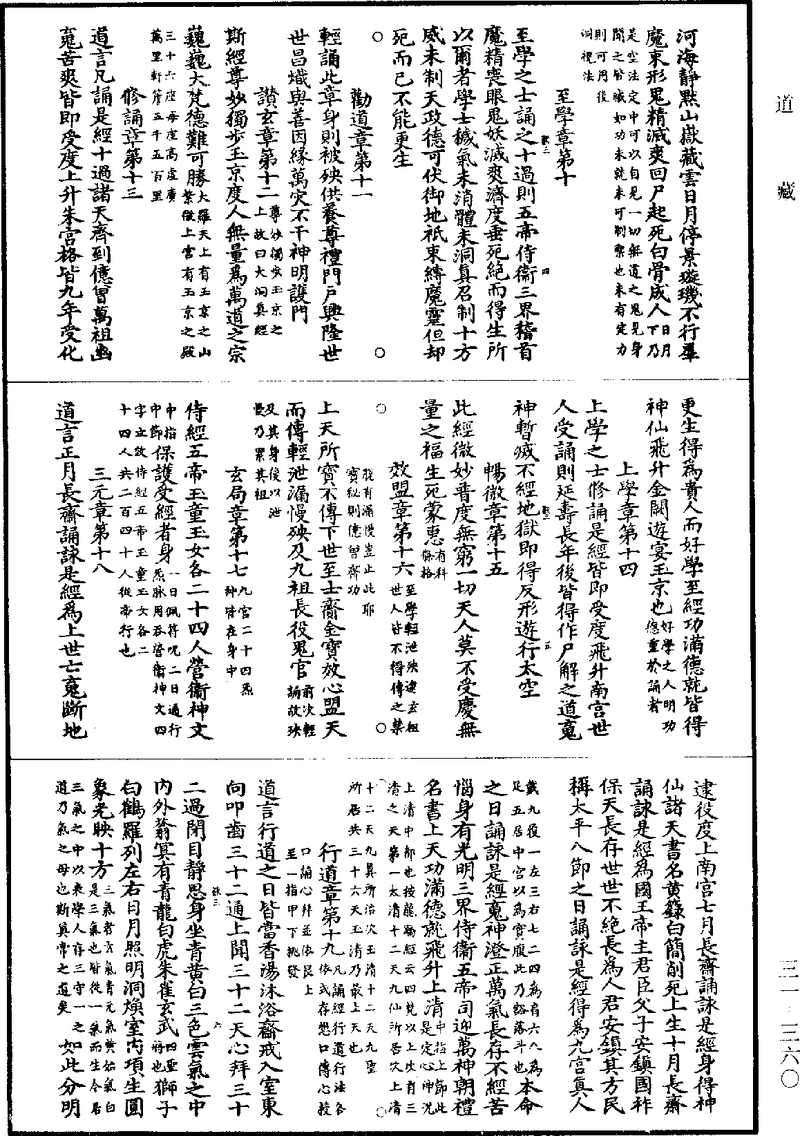 道藏
三一·三六〇
河海靜默山嶽藏雲日月停景璇璣不行羣
魔束形鬼精滅爽回尸起死白骨成人日月
下乃
是空法定中可以自見一切無道之鬼見身
聞之皆滅如功未就未可制禦也未有定力
則可用後
洞視法
至學章第十
至學之士誦之十過則五帝侍衛三界稽首
魔精喪眼鬼妖滅爽濟度垂死絕而得生所
以爾者學士穢氣未消體未洞真召制十方
威未制天政德可伏御地祇束縛魔靈但却
死而已不能更生
勸道章第十一
輕誦此章身則被殃供養尊禮門戶興隆世
世昌熾與善因緣萬灾不干神明護門
讃玄章第十二尊妙獨步玉京之
上故曰大洞真經
斯經尊妙獨步玉京度人無量為萬道之宗
巍巍大梵德難可勝大羅天上有玉京之山
紫微上宮有玉京之殿
三十六座每座高虛廣
萬里軒蓋五千五百里
修誦章第十三
道言凡誦是經十過諸天齊到億曾萬祖幽
䰟苦爽皆即受度上升朱宮格皆九年受化
更生得為貴人而好學至經功滿德就皆得
神仙飛升金闕遊宴玉京也好學之人明功
德重於誦者
上學章第十四
上學之士修誦是經皆即受度飛升南宮世
人受誦則延壽長年後皆得作尸解之道䰟
神暫滅不經地獄即得反形遊行太空
暢微章第十五
此經微妙普度無窮一切天人莫不受慶無
量之福生死蒙惠有科
條格
效盟章第十六至學輕泄殃逮玄祖
世人皆不得傳之禁
脫有漏慢豈止此耶
寶秘則德曾齊功
上天所寶不傳下世至士齎金寶效心盟天
而傳輕泄漏慢殃及九祖長役鬼官前次輕
誦故殃
及其身後以泄
慢乃累其祖
玄局章第十七九宮二十四炁
神皆在身中
侍經五帝玉童玉女各二十四人營衛神文
中指
中節保護受經者身一日佩符呪二日通行
炁脉用吞皆衛神文四
字立故侍經五帝玉童玉女各二
十四人共二百四十人從帝行也
三元章第十八
道言正月長齋誦詠是經為上世亡䰟斷地
逮役度上南宮七月長齋誦詠是經身得神
仙諸天書名黄籙白簡削死上生十月長齋
誦詠是經為國王帝主君臣父子安鎮國祚
保天長存世世不絕長為人君安鎮其方民
稱太平八節之日誦詠是經得為九宮真人
戴九履一左三右七二四為肩六八為
足五居中宮以為實腹此乃豁落斗也本命
之日誦詠是經䰟神澄正萬氣長存不經苦
惱身有光明三界侍衛五帝司迎萬神朝禮
名書上天功滿德就飛升上清中指上節此
是定心神況
上清中都也按龍蹻經云四梵以上次有三
清之天第一太清十二天九仙所居次上清
十二天九真所治次玉清十二天九聖
所居共三十六天玉清乃最上天也
行道章第十九凡誦經行道行法各
依式存想口傳心授
口誦心拜並依艮上
至一指甲下挑發
道言行道之日皆當香湯沐浴齋戒入室東
向叩齒三十二通上聞三十二天心拜三十
二過閉目靜思身坐青黄白三色雲氣之中
內外蓊冥有青龍白虎朱雀玄武四靈
將也獅子
白鶴羅列左右日月照明洞煥室內項生圓
象光映十方三氣者玄氣青元氣黄始氣白
是三氣也皆從一氣而生今居
三氣之中以象學人存三守一之
道乃氣之母也斯真常之道矣如此分明